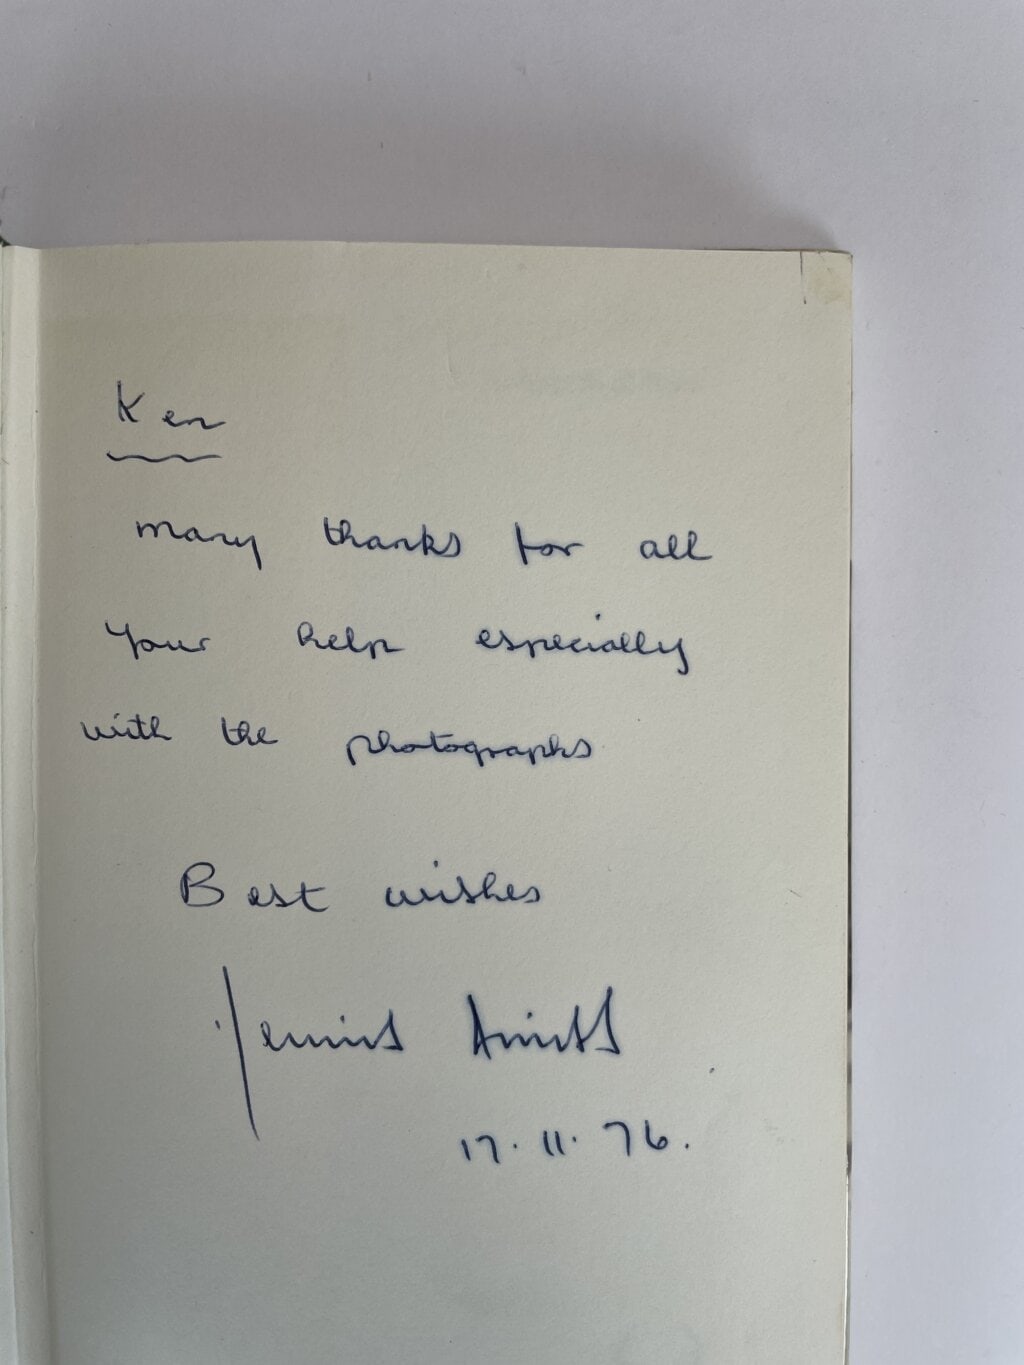 Ken
many thanks for all
your help especially
with the photographs
Best wishes
17.11.76.